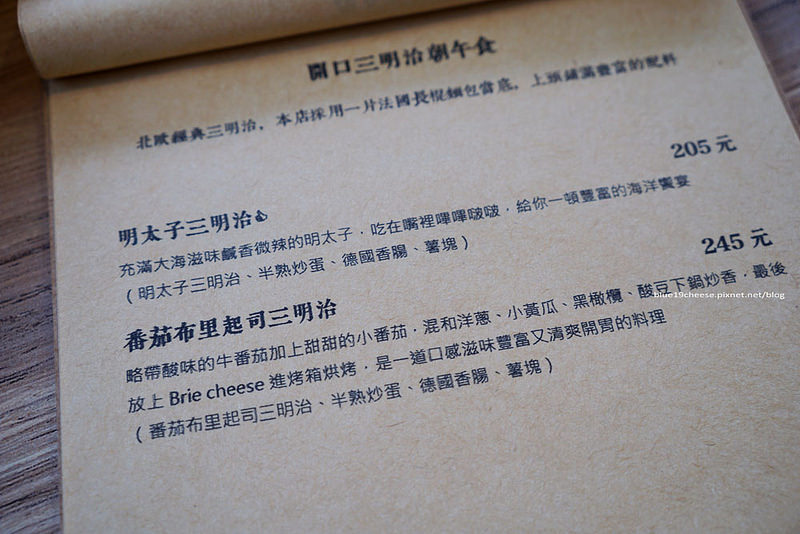 開口三明治朝午食
北歐經典三明治，本店採用一片法國長棍麵包當底，上頭鋪滿豐富的配料
205 元
明太子三明治
充滿大海滋味鹹香微辣的明太子，吃在嘴裡嗶嗶啵啵，給你一頓豐富的海洋饗宴
（明太子三明治、半熟炒蛋、德國香腸、薯塊）
245 元
番茄布里起司三明治
略帶酸味的牛番茄加上甜甜的小番茄，混和洋蔥、小黃瓜、黑橄欖、酸豆下鍋炒香，最後
放上 Brie cheese 進烤箱烘烤，是一道口感滋味豐富又清爽開胃的料理
（番茄布里起司三明治、半熟炒蛋、德國香腸、薯塊）
blue19cheese.pixnet.net/blog